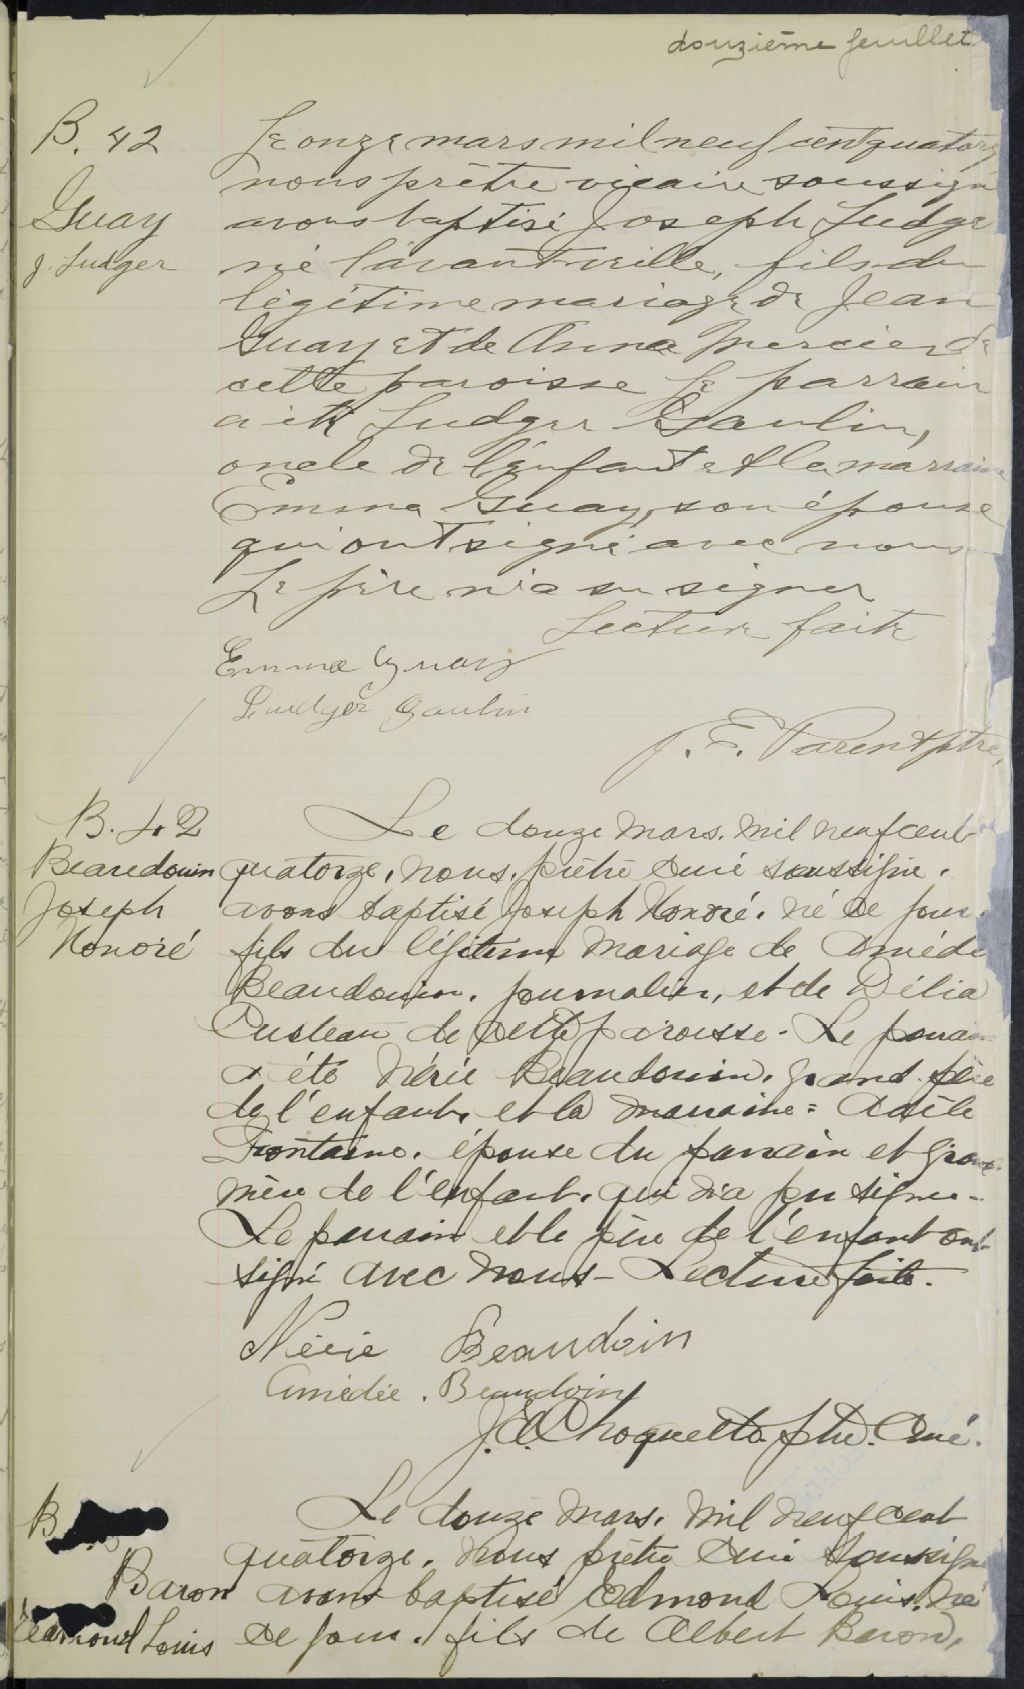 douzième feuillet
B. 42
Guay
J. Ludger
Le onze mars mil neuf cent quatorze
nous prêtre vicaire soussigné
avons baptisé Joseph Ludger
né l'avant-veille, fils du
légitime mariage de Jean
Guay et de Anna Mercier de
cette paroisse Le parrain
a été Ludger Gaulin,
oncle de l'enfant et la marraine
Emma Guay, son épouse
qui ont signé avec nous
Le père n'a su signer
Lecture faite
Emma Guay
Ludger Gaulin
J. E. Parent ptre,
B. 42
Beaudouin
Joseph
Honoré
Le douze mars. mil neuf cent
quatorze, nous, prêtre curé soussigné,
avons baptisé Joseph Honoré. né ce jour.
fils du légitime mariage de Amédé
Beaudouin. journalier, et de Délia
Custeau de cette paroisse - Le parrain
a été Nérée Beaudouin, grand-père
de l'enfant, et la marraine = Adèle
Frontaine. épouse du parrain et grand-
mère de l'enfant, qui n'a pu signer -
Le parrain et le père de l'enfant ont
signé avec nous - Lecture faite.
Nérie Beaudoin
Amédée. Beaudoin
J. Choquette ptre. Curé.
B
Baron
Edmond Louis
Le douze mars. mil neuf cent
quatorze. nous prêtre curé soussigné
avons baptisé Edmond Louis. né
ce jour. fils de Albert Baron,